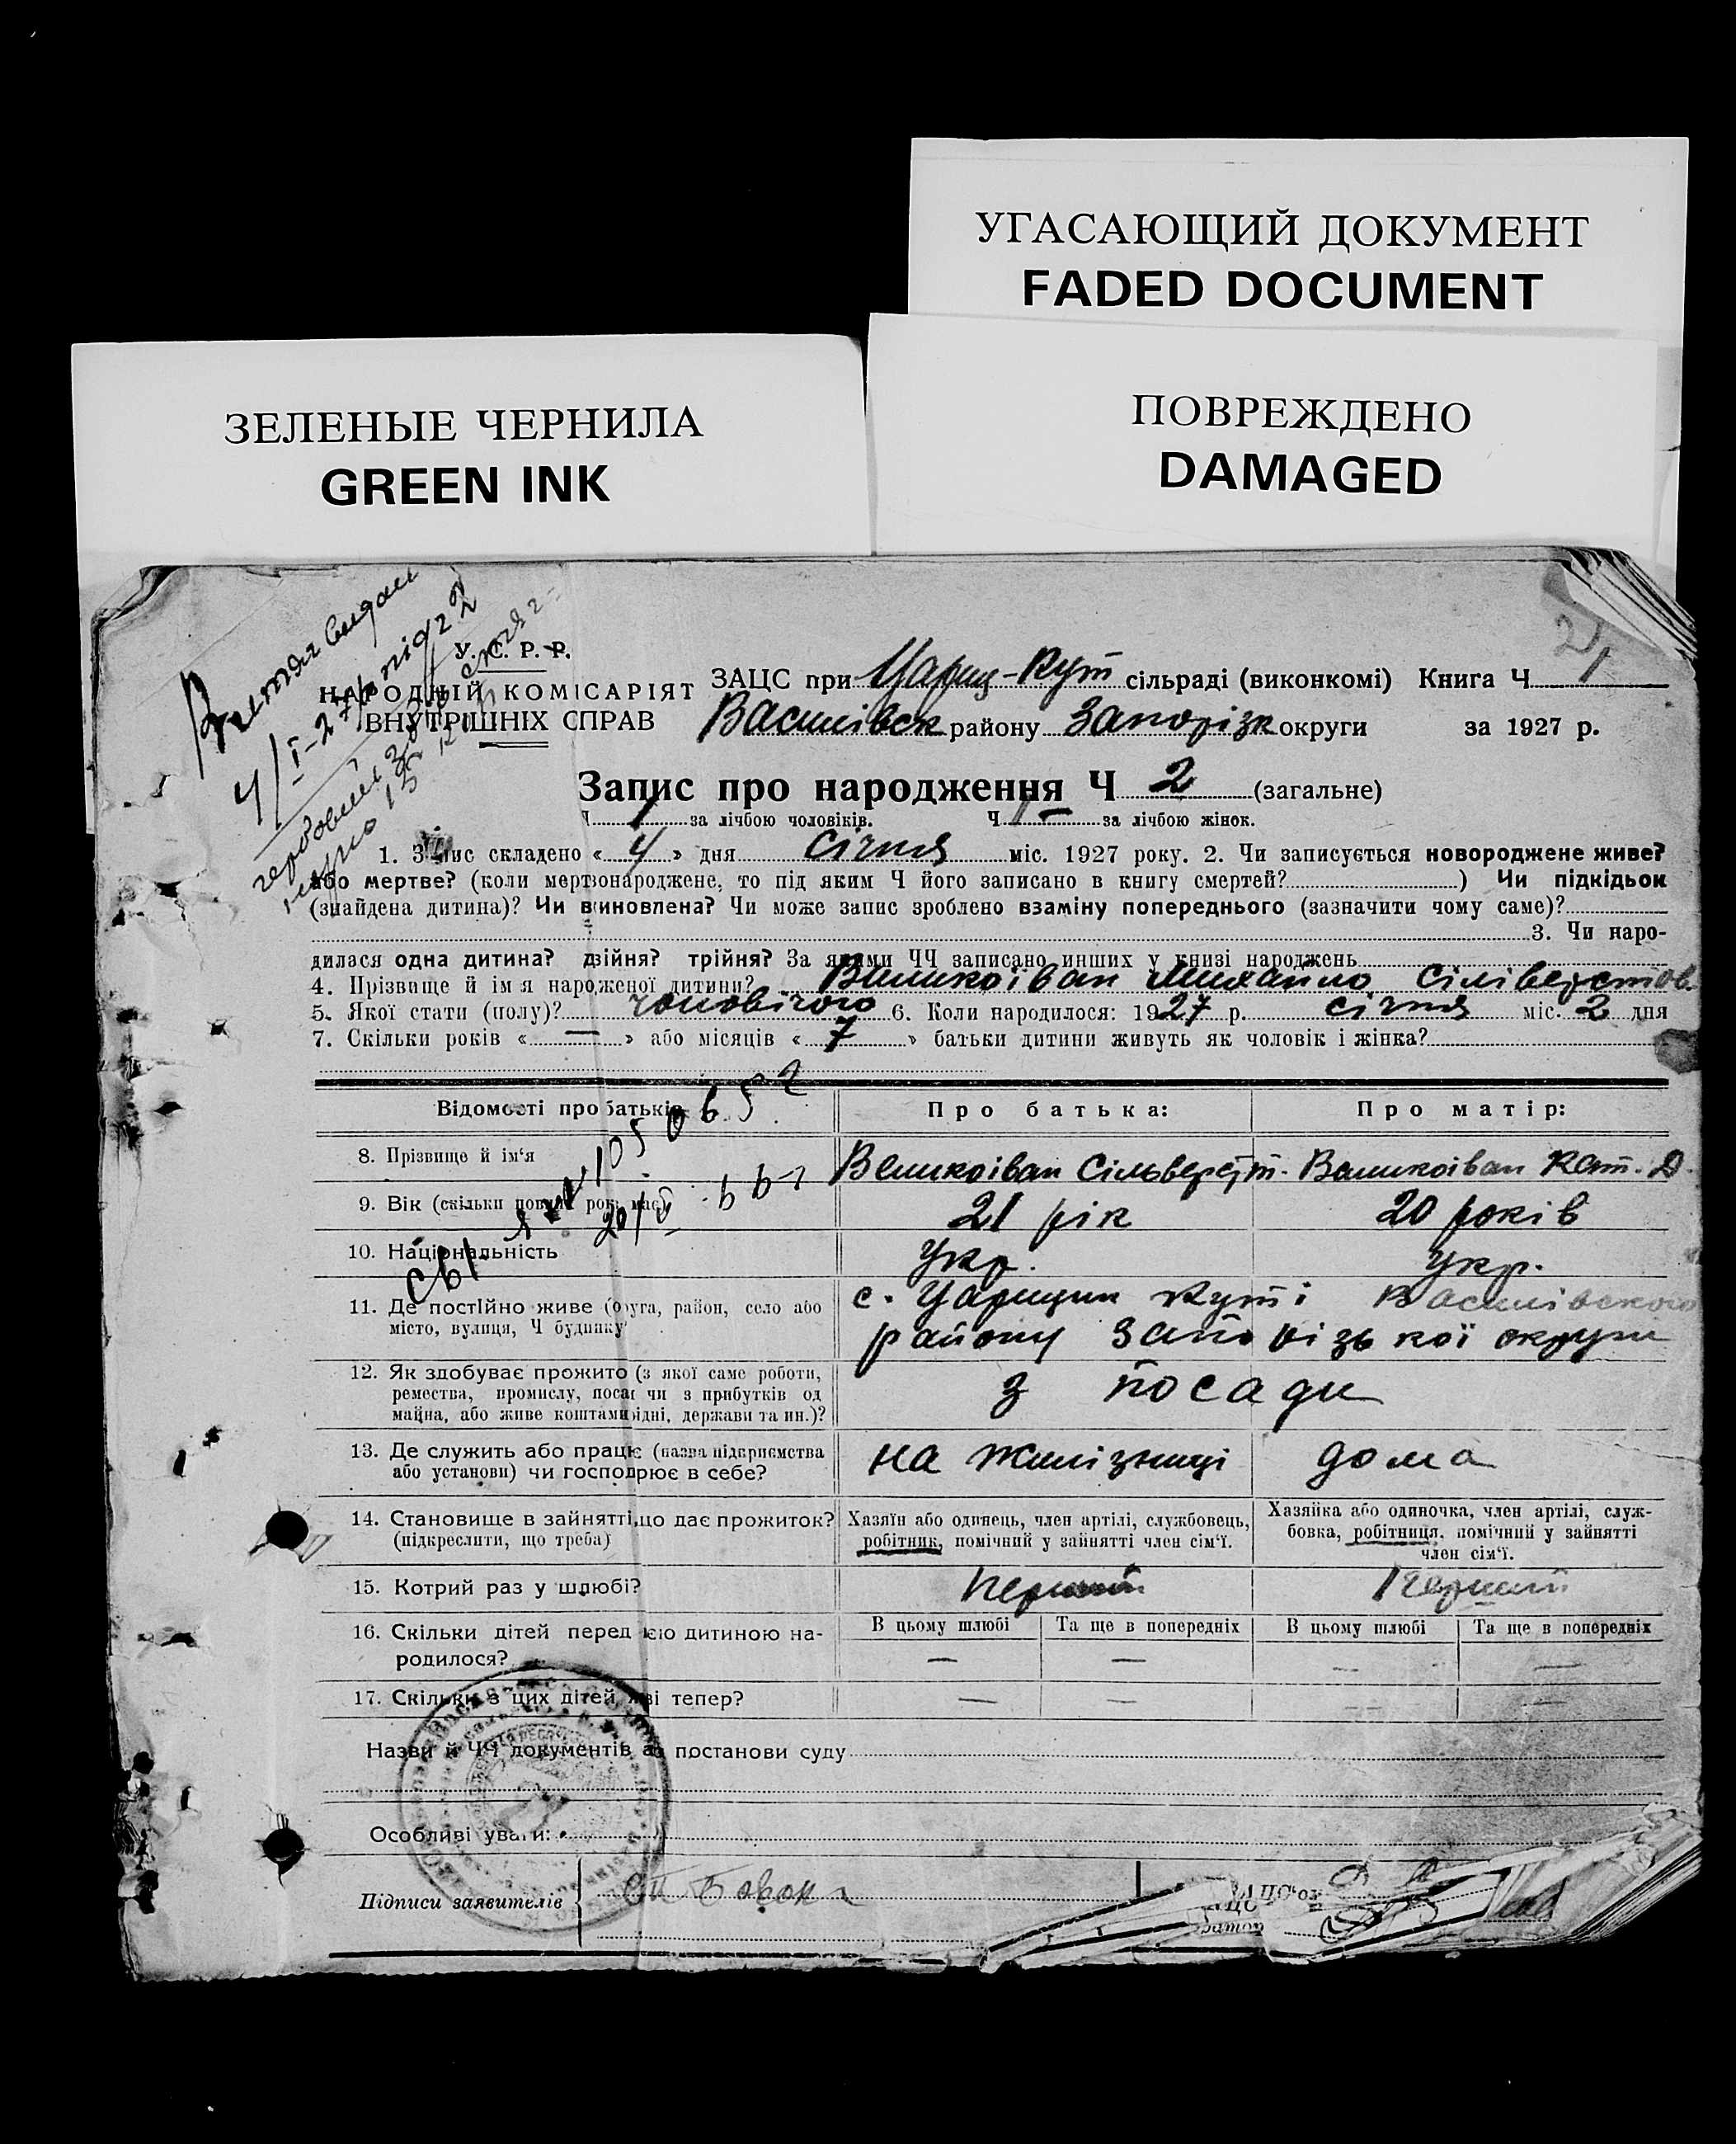 УГАСАЮЩИЙ ДОКУМЕНТ
FADED DOCUMENT
ЗЕЛЕНЫЕ ЧЕРНИЛА
GREEN INK
ПОВРЕЖДЕНО
DAMAGED
Витяг видан
4/I-27
У. С. Р. Р.
НАРОДНІЙ КОМІСАРІЯТ
ВНУТРІШНІХ СПРАВ
21
ЗАЦС при Цариц-Кут сільраді (виконкомі) Книга Ч 1
Василівск району Запорізк округи за 1927 р.
Запис про народження Ч 2 (загальне)
Ч 1 за лічбою чоловіків. Ч — за лічбою жінок.
1. Запис складено « 4 » дня січня міс. 1927 року. 2. Чи записується новороджене живе?
або мертве? (коли мертвонароджене, то під яким Ч його записано в книгу смертей? ) Чи підкідьок
(знайдена дитина)? Чи виновлена? Чи може запис зроблено взаміну попереднього (зазначити чому саме)?
3. Чи наро-
дилася одна дитина? двійня? трійня? За якими ЧЧ записано инших у книзі народжень
4. Прізвище й ім'я народженої дитини? Великоіван Михайло Сілівестов.
5. Якої стати (полу)? чоловічого 6. Коли народилося: 1927 р. січня міс. 2 дня
7. Скільки років « — » або місяців « 7 » батьки дитини живуть як чоловік і жінка?
Відомості про батьків Про батька: Про матір:
8. Прізвище й ім'я Великоіван Сільверст. Великоіван Кат. Д.
9. Вік (скільки повних років має) 21 рік 20 років
10. Національність Укр. Укр.
11. Де постійно живе (округа, район, село або с. Царицин Куті Василівского
місто, вулиця, Ч будинку) району Запорізької округи
12. Як здобуває прожито (з якої саме роботи, з посади
ремества, промислу, посади чи з прибутків од
майна, або живе коштами рідні, держави та ин.)?
13. Де служить або працює (назва підприємства на желізниці дома
або установи) чи господрює в себе?
14. Становище в зайнятті, що дає прожиток? Хазяїн або одинець, член артілі, службовець, Хазяйка або одиночка, член артілі, служ-
(підкреслити, що треба) робітник, помічний у зайнятті член сім'ї. бовка, робітниця, помічний у зайнятті
член сім'ї.
15. Котрий раз у шлюбі? перший Перший
16. Скільки дітей перед цією дитиною на- В цьому шлюбі Та ще в попередніх В цьому шлюбі Та ще в попередніх
родилося? — — — —
17. Скільки з цих дітей живі тепер? — — — —
Назви й ЧЧ документів або постанови суду
Особливі уваги:
Підписи заявителів